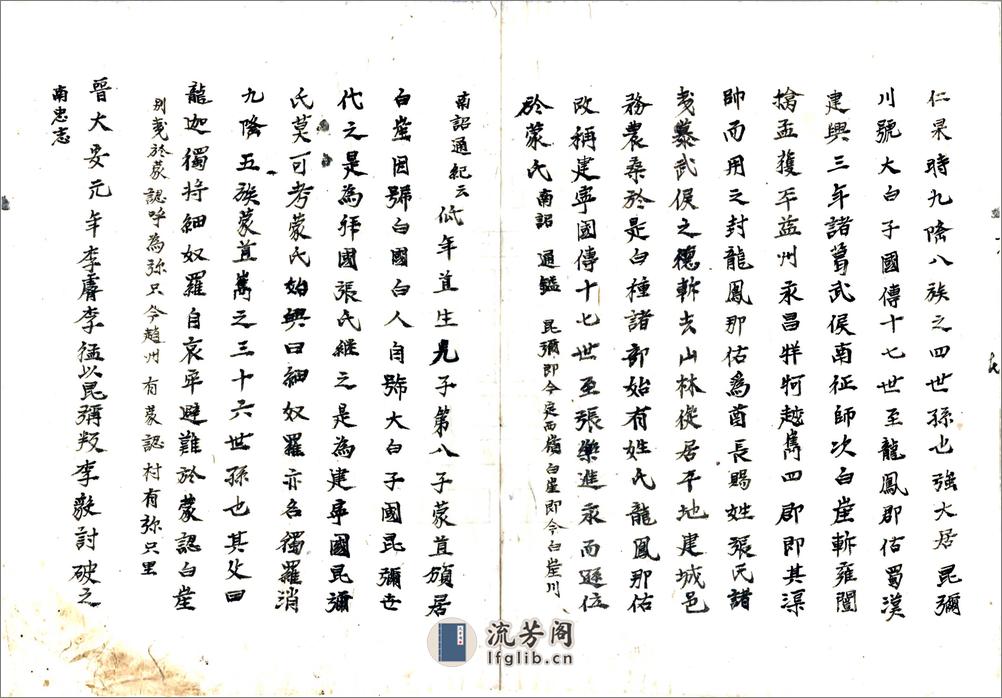 仁果時九隆八族之四世孫也強大居昆彌
川號大白子國傳十七世至龍鳳郡佑蜀漢
建興三年諸葛武侯南征師次白崖斬雍闓
擒孟獲平益州永昌牂牁越嶲四郡即其渠
帥而用之封龍鳳那佑為酋長賜姓張氏諸
夷慕武侯之德斬去山林徙居平地建城邑
務農桑於是白種諸部始有姓氏龍鳳那佑
改稱建寧國傳十七世至張樂進求而遜位
於蒙氏 南詔通鑑 昆彌即今定西嶺白崖即今白崖川
南詔通紀云低牟苴生九子第八子蒙苴頌居
白崖因號白國白人自號大白子國昆彌世
代之是為拜國張氏繼之是為建寧國昆彌
氏莫可考蒙氏始興曰細奴羅亦名獨羅消
九隆五族蒙苴篤之三十六世孫也其父曰
龍迦獨將細奴羅自哀牢避難於蒙認白崖
別夷於蒙認呼為弥只今趙州有蒙認村有弥只里
晉大安元年李睿李猛以昆彌叛李毅討破之
南忠志
流芳阁
lfglib.cn